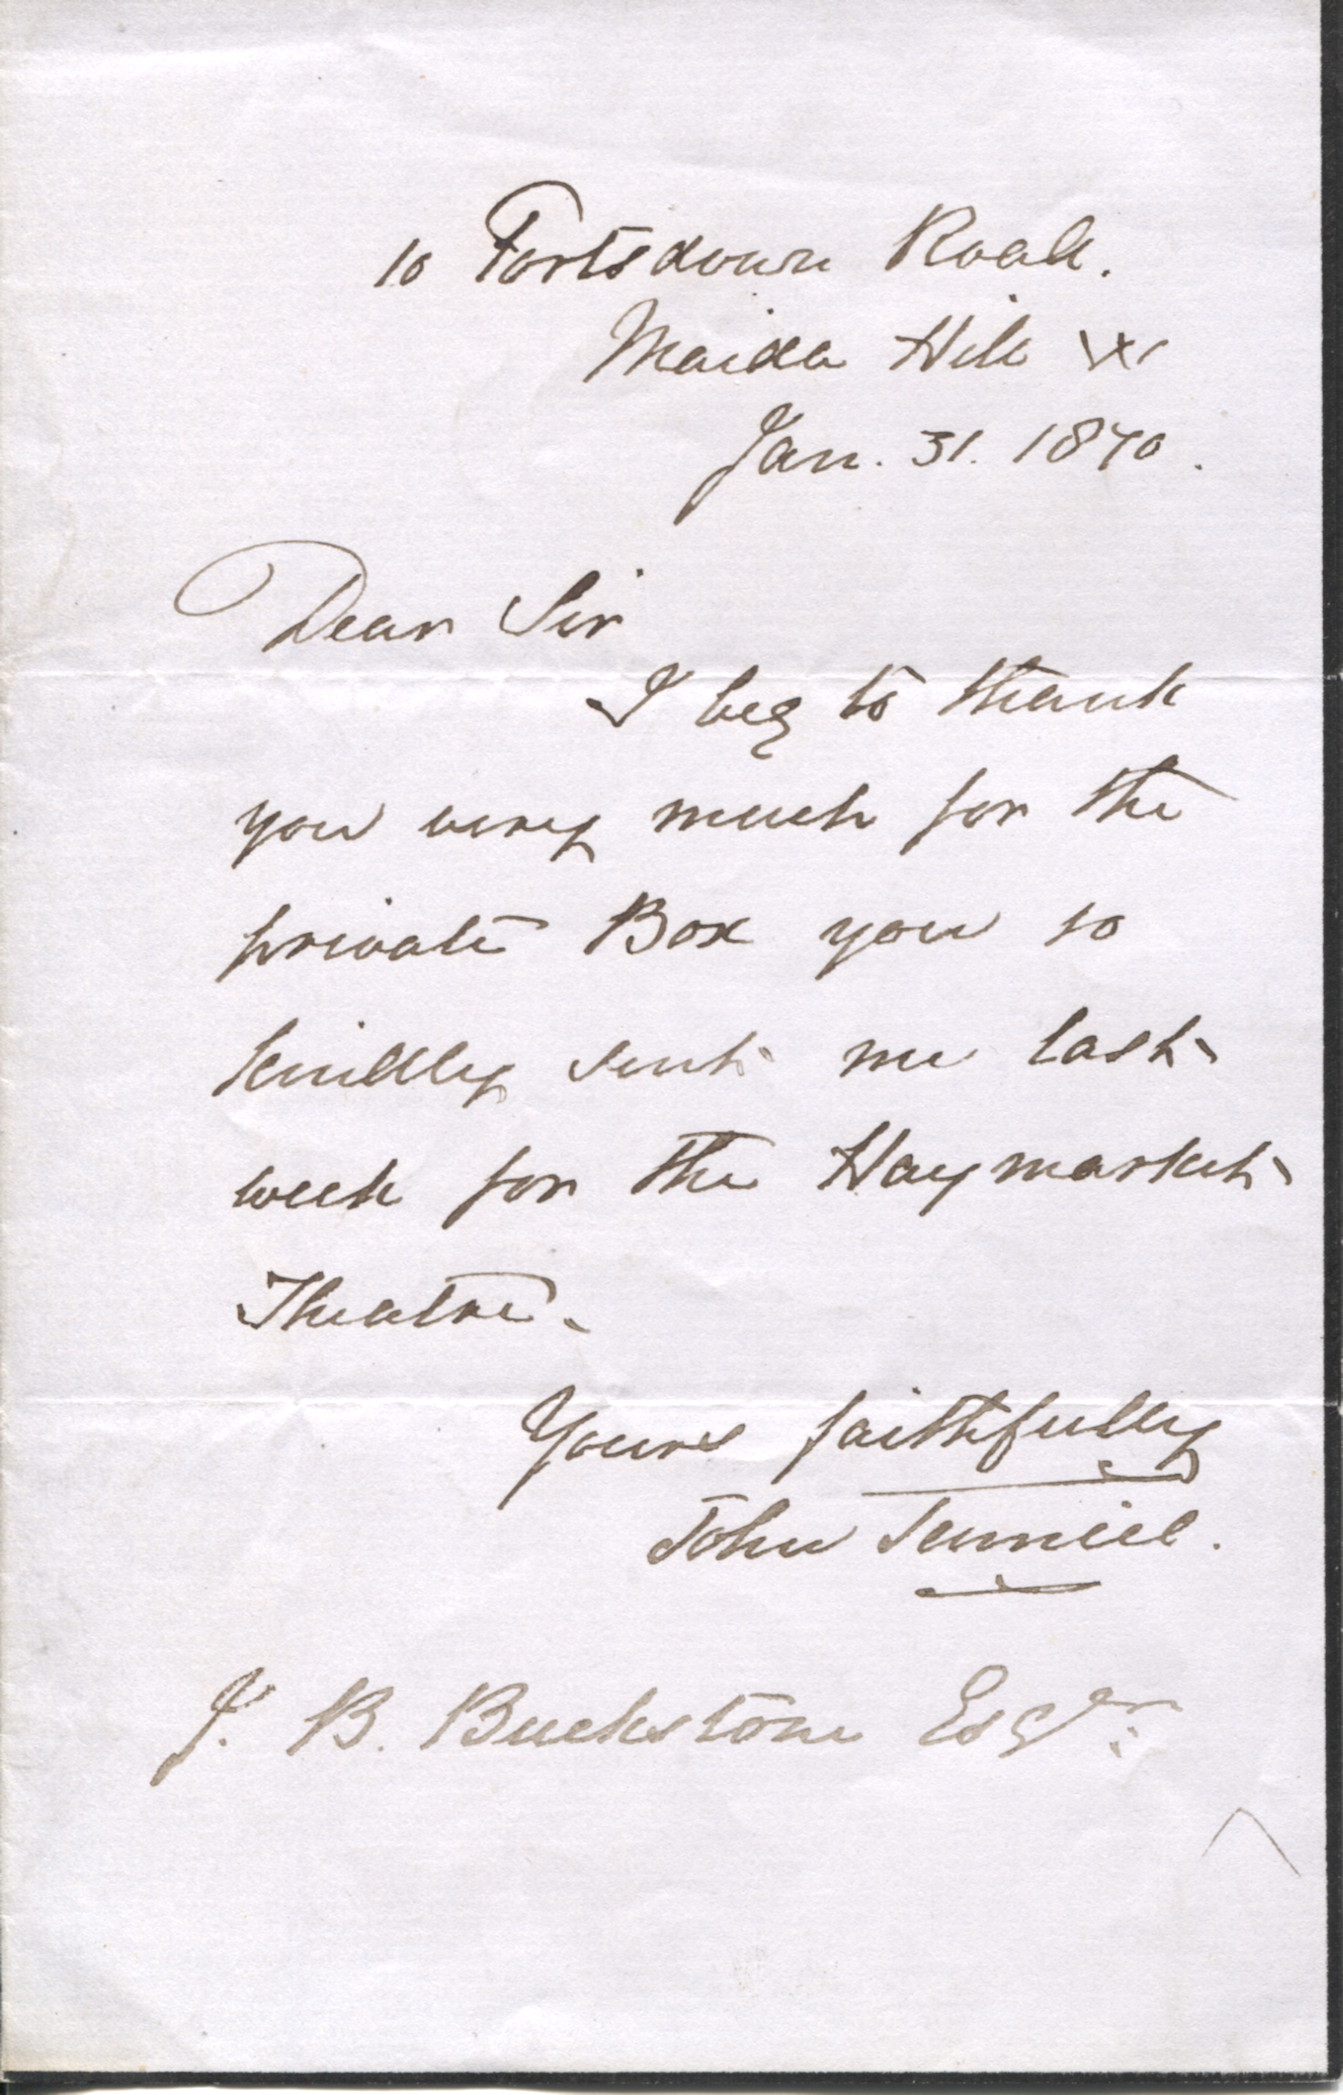 10 Portsdown Road.
Maida Hill W
Jan. 31. 1870.
Dear Sir
I beg to thank
you very much for the
private Box you so
kindly sent me last
week for the Haymarket
Theatre.
Yours faithfully
John Tenniel.
J. B. Buckstone Esqre